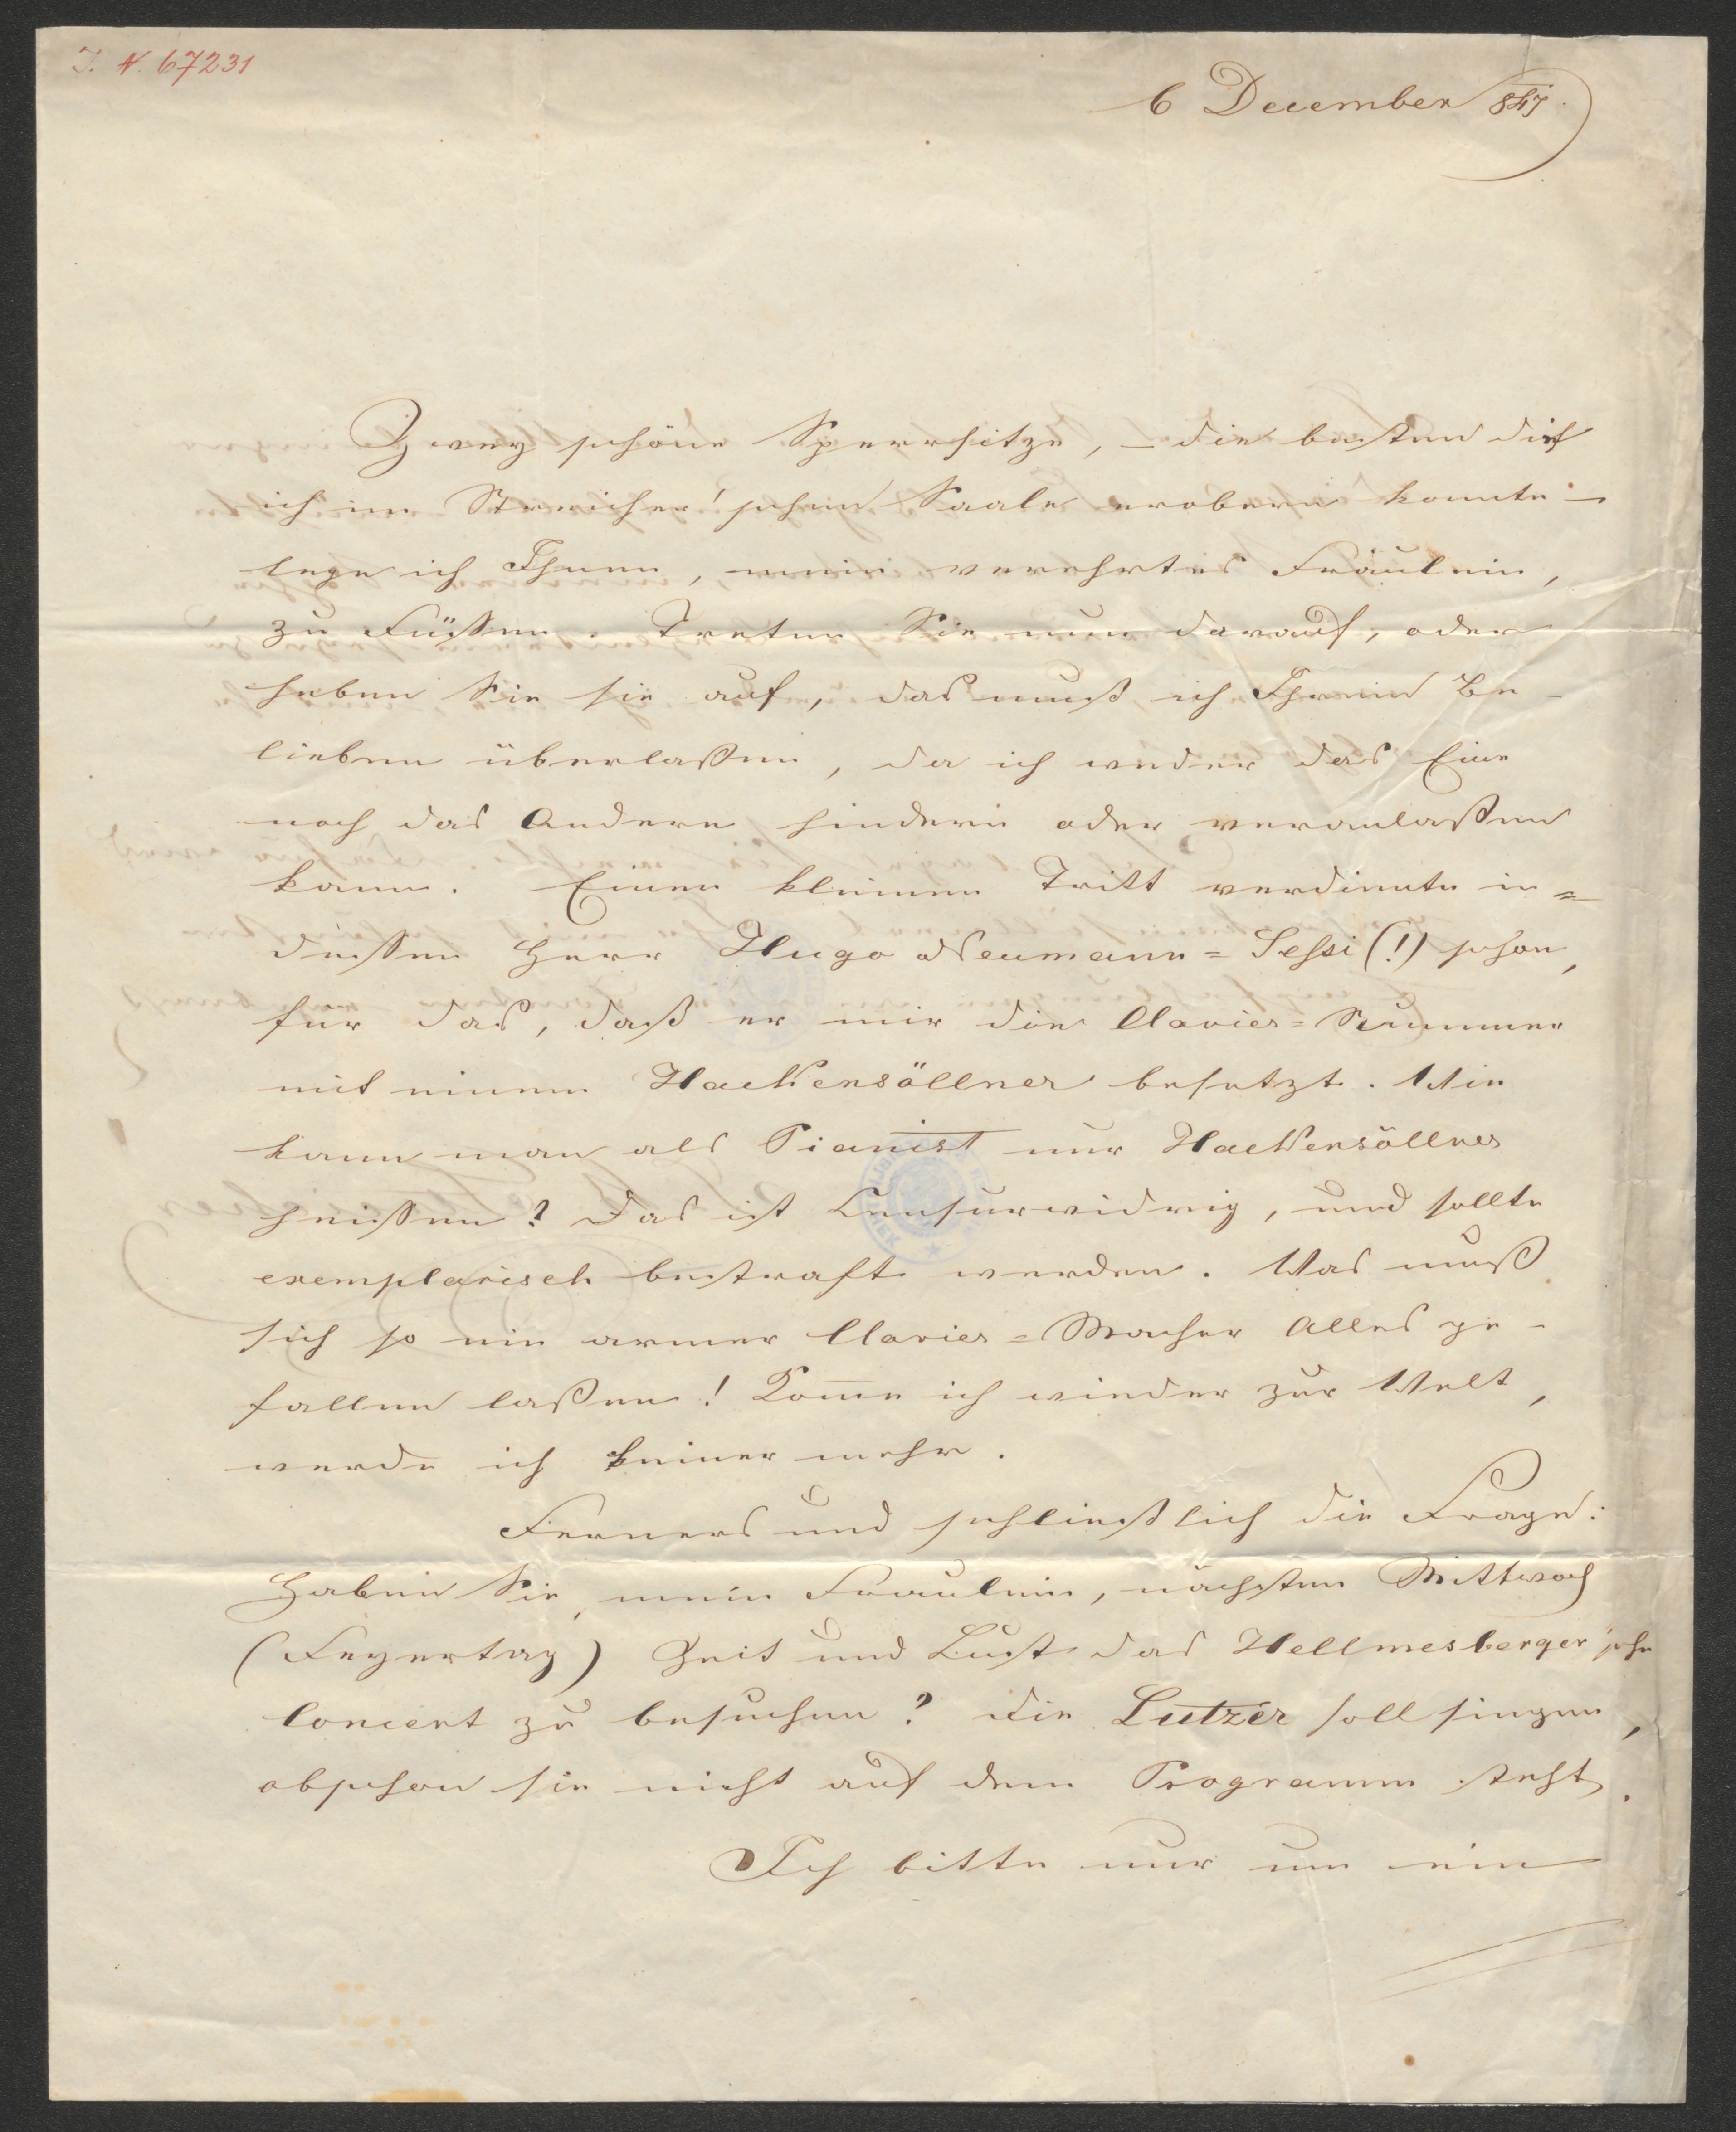 I. N. 67231
6 December 847.
Zwey schöne Sperrsitze, – die besten die
ich im Streicher'schen Saale erobern konnte –
lege ich Ihnen, mein verehrtes Fräulein,
zu Füssen. Treten Sie nun darauf, oder
heben Sie sie auf, das muß ich Ihrem Be-
lieben überlaßen, da ich weder das Eine
noch das Andere hindern oder veranlaßen
kann. Einen kleinen Tritt verdiente in=
dessen Herr Hugo Neumann=Sessi (!) schon,
für das, daß er mir die Clavier=Nummer
mit einem Hackensöllner besetzt. Wie
kann man als Pianist nur Hackensöllner
heissen? Das ist Censurwidrig, und sollte
exemplarisch bestraft werden. Was muß
sich so ein armer Clavier=Macher Alles ge-
fallen laßen! Kom̅e ich wieder zur Welt,
werde ich keiner mehr.
Ferners und schliesslich die Frage:
Haben Sie, mein Fräulein, nächsten Mittwoch
(Feyertag) Zeit und Lust das Hellmesberger'sche
Concert zu besuchen? Die Lutzer soll singen,
obschon sie nicht auf dem Programm steht.
Ich bitte nur um ein